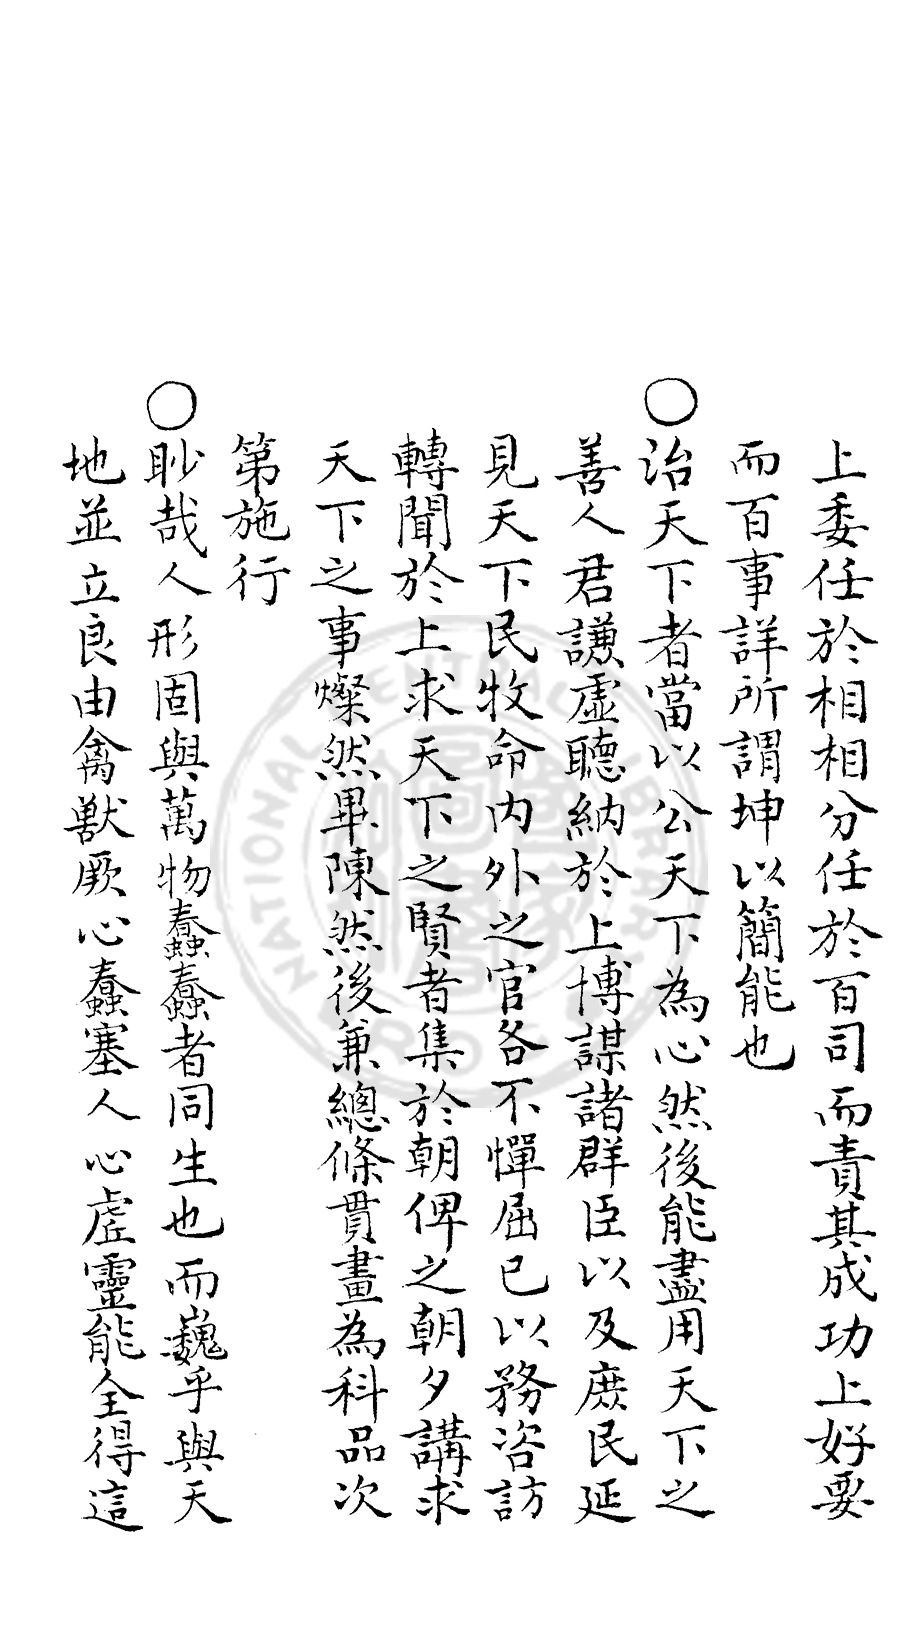 上委任於相相分任於百司而責其成功上好要
而百事詳所謂坤以簡能也
○治天下者當以公天下為心然後能盡用天下之
善人君謙虛聽納於上博謀諸群臣以及庶民延
見天下民牧命內外之官各不憚屈已以務咨訪
轉聞於上求天下之賢者集於朝俾之朝夕講求
天下之事燦然畢陳然後兼總條貫畫為科品次
第施行
○眇哉人形固與萬物蠢蠢者同生也而巍乎與天
地並立良由禽獸厥心蠢塞人心虛靈能全得這
NATIONAL CENTRAL LIBRARY